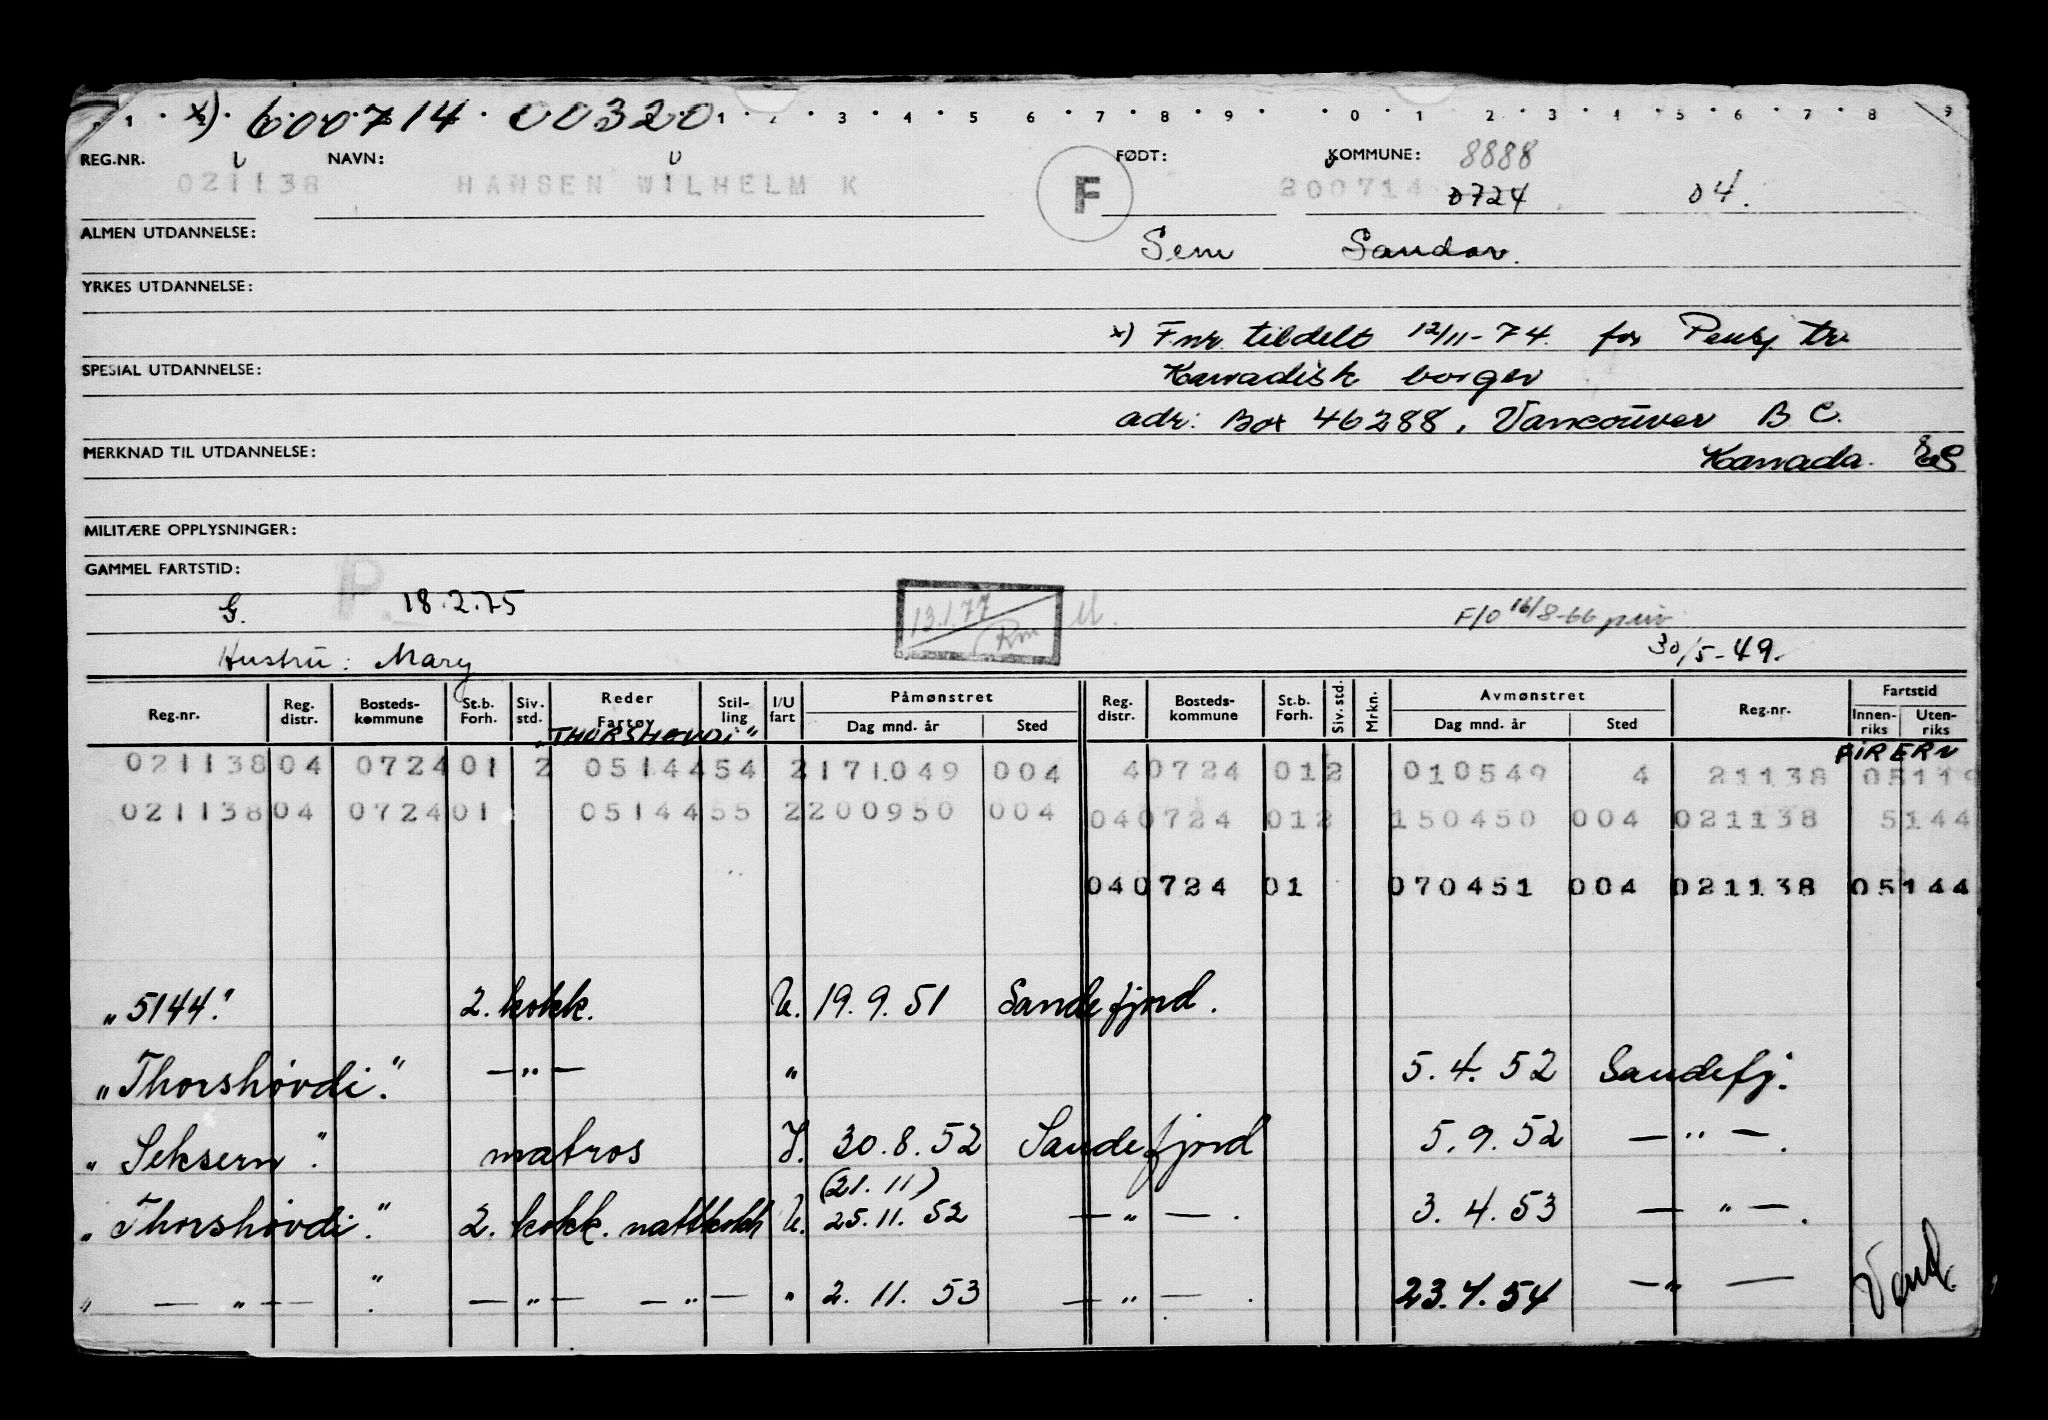 1 x) 600714 00320 1 2 3 4 5 6 7 8 9 0 1 2 3 4 5 6 7 8 9
REG.NR. NAVN: FØDT: KOMMUNE: 8888
021138 HANSEN WILHELM K F 200714 0724 04.
ALMEN UTDANNELSE: Sem Sandar.
YRKES UTDANNELSE:
x) Fnr. tildelt 12/11-74. for Pensj tr
SPESIAL UTDANNELSE: Kanadisk borger
adr: Box 46288, Vancouver B C.
MERKNAD TIL UTDANNELSE: Kanada.
MILITÆRE OPPLYSNINGER:
GAMMEL FARTSTID: P.
G. 18.2.75 13.1.77 Rm F/O 16/8-66 priv
Hustru: Mary 30/5-49.
Reg.nr. Reg. distr. Bosteds- kommune St.b. Forh. Siv. std. Reder Fartøy Stil- ling I/U fart Påmønstret Dag mnd. år Sted Reg. distr. Bosteds- kommune St.b. Forh. Siv. std. Mrkn. Avmønstret Dag mnd. år Sted Reg.nr. Fartstid Innen- riks Uten- riks
"THORSHOVDI" PIRERN
021138 04 0724 01 2 05144 54 2 171049 004 4 0724 01 2 010549 4 21138 05119
021138 04 0724 01 05144 55 2 200950 004 04 0724 01 2 150450 004 021138 5144
04 0724 01 070451 004 021138 05144
"5144." 2. kokk. U. 19.9.51 Sandefjord.
"Thorshövdi." — " — " 5.4.52 Sandefj.
"Seksern". matros I. 30.8.52 Sandefjord 5.9.52 — " — .
(21.11)
"Thorshövdi." 2. kokk. nattkokk U. 25.11.52 — " — . 3.4.53 — " — .
" — " — ." — " — — " — " 2.11.53 — " — . 23.4.54 — " — Vend